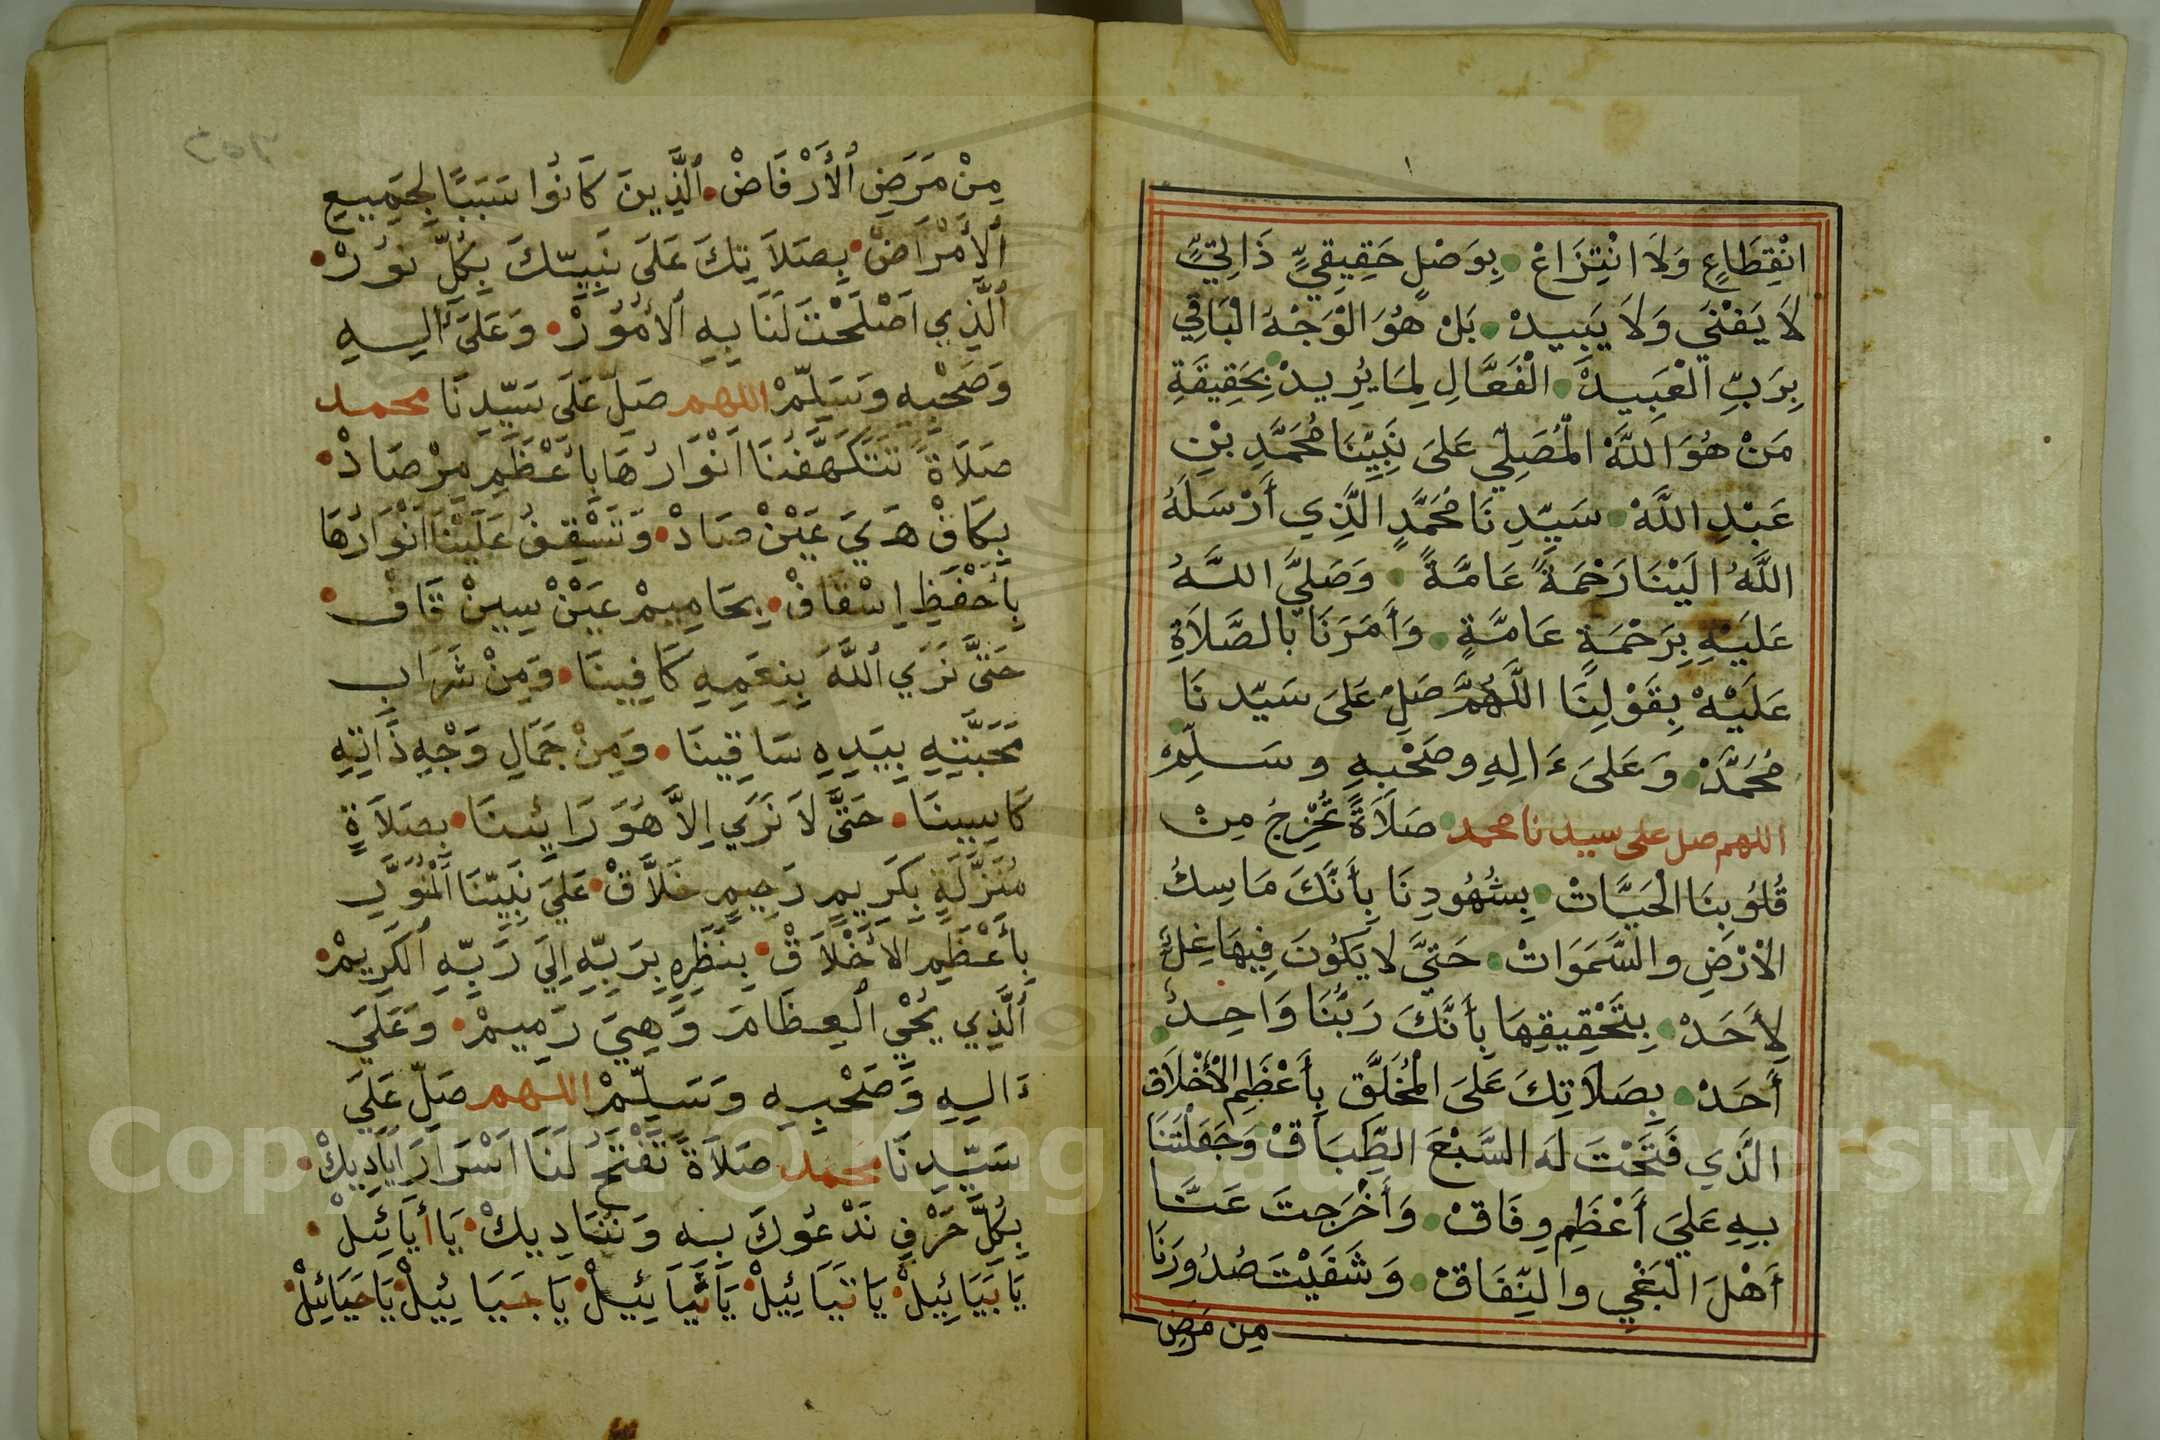 انْقِطَاعٍ وَلَا انْتِزَاعْ بِوَصْلٍ حَقِيقِيٍّ ذَاتِيٍّ
لَا يَفْنَى وَلَا يَبِيدْ بَلْ هُوَ الْوَجْهُ الْبَاقِي
بِرَبِّ الْعَبِيدْ الْفَعَّالِ لِمَا يُرِيدْ بِحَقِيقَةِ
مَنْ هُوَ اللَّهْ الْمُصَلِّي عَلَى نَبِيِّنَا مُحَمَّدِ بْنِ
عَبْدِ اللَّهْ سَيِّدِنَا مُحَمَّدٍ الَّذِي أَرْسَلَهُ
اللَّهُ الَيْنَا رَحْمَةً عَامَّةً وَصَلَّى اللَّهُ
عَلَيْهِ بِرَحْمَةٍ عَامَّةٍ وَأَمَرَنَا بالصَّلَاةِ
عَلَيْهْ بِقَوْلِنَا اللَّهُمَّ صَلِّ عَلَى سَيِّدنَا
مُحَمَّدْ وَعَلَى ءَالِهِ وصَحْبِهِ وسَلِّمْ
اللهم صل على سيدنا محمد صَلَاةً تُخْرِجُ مِنْ
قُلُوبِنَا الْحَيَّاتْ بِشُهُودِنَا بِأَنَّكَ مَاسِكُ
الْأَرْضِ والسَّمَوَاتْ حَتَّى لا يَكُونَ فِيهَا غِلٌّ
لِأَحَدْ بِتَحْقِيقِهَا بِأَنَّكَ رَبُّنَا وَاحِدٌ
أَحَدْ بِصَلَاتِكَ عَلَى الْمُخَلَّق بِأَعْظَمِ الْأَخْلَاق
الَّذِي فَتَحْتَ لَهَ السَّبْعَ الطِّبَاقْ وَجَعَلْتَنَا
بِهِ عَلَى أَعْظَمِ وِفَاقْ وَأَخْرَجتَ عَنَّا
أَهْلَ الْبَغْيِ والنِّفَاقْ وَشَفَيْتَ صُدُورَنَا
مِن مَرَضِ
مِنْ مَرَضِ ٱلْأَرْفَاضْ ٱلَّذِينَ كَانُوا سَبَبًا لِجَمِيعِ
ٱلْأَمْرَاضْ بِصَلَاتِكَ عَلَى نَبِيِّكَ بِكُلِّ نُورْ
ٱلَّذِي اَصْلَحْتَ لَنَا بِهِ ٱلْأُمُورْ وَعَلَى ءَالِهِ
وَصَحْبِهِ وَسَلِّمْ اللهم صَلِّ عَلَى سَيِّدِنَا محمد
صَلَاةً تَتَكَهَّفُنَا اَنْوَارُهَا بِأَعْظَمِ مِرْصَادْ
بِكَافْ هَ يَ عَيْنْ صَادْ وَتَسْقِفُ عَلَيْنَا اَنْوَارُهَا
بِأَحْفَظِ اِسْقَافْ بِحَامِيمْ عَيْنْ سِينْ قَافْ
حَتَّى نَرَي ٱللَّهَ بِنِعَمِهِ كَافِينَا وَمِنْ شَرَابِ
مَحَبَّتِهِ بِيَدِهِ سَاقِينَا وَمِنْ جَمَالِ وَجْهِ ذَاتِهِ
كَاسِينَا حَتَّى لَا نَرَي اِلَّا هُوَ رَائِينَا بِصَلَاةٍ
مُنَزَّلَةٍ بِكَرِيمٍ رَحِيمٍ خَلَّاقْ عَلَى نَبِيِّنَا ٱلْمُنَوَّرِ
بِأَعْظَمِ الْأَخْلَاقْ بِنَظَرِهِ بِرَبِّهِ اِلَى رَبِّهِ ٱلْكَرِيمْ
ٱلَّذِي يُحْيِ ٱلْعِظَامَ وَهِيَ رَمِيمْ وَعَلَى
ءَالِهِ وَصَحْبِهِ وَسَلِّمْ اللهم صَلِّ عَلَى
سَيِّدِنَا محمد صَلَاةً تَفْتَحُ لَنَا اَسْرَارَ اَيَادِيكْ
بِكُلِّ حَرْفٍ نَدْعُوكَ بِهِ وَنُنَادِيكْ يَا أَيَائِيلْ
يَا بَيَائِيلْ يَا تَيَائِيلْ يَا ثَيَائِيلْ يَا جَيَائِيلْ يَا حَيَائِيلْ
Copyright © King Saud University